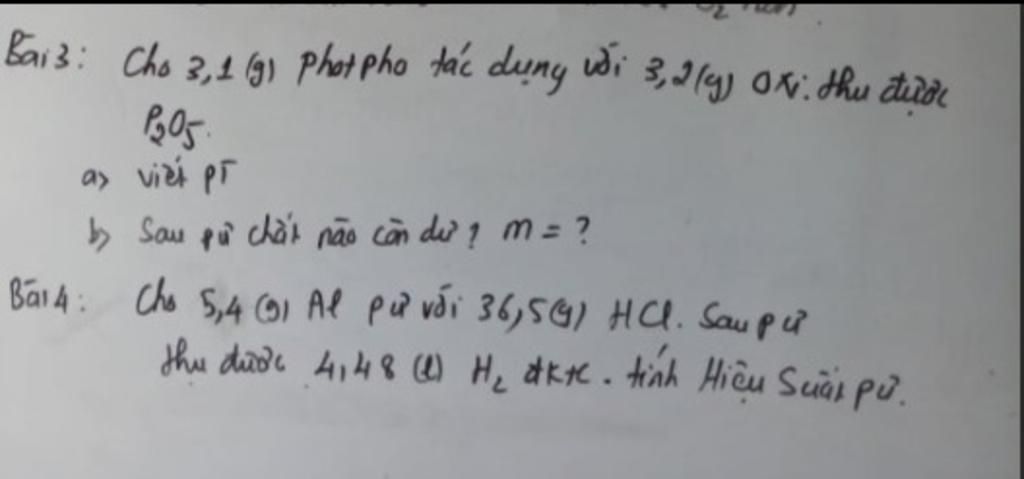 O2
Bài 3: Cho 3,1 (g) photpho tác dụng với 3,2 (g) Oxi. thu được
P2O5.
a> viết pT
b> Sau pứ chất nào còn dư? m = ?
Bài 4: Cho 5,4 (g) Al pứ với 36,5 (g) HCl. Sau pứ
thu được 4,48 (l) H2 đktc. tính Hiệu Suất pứ.